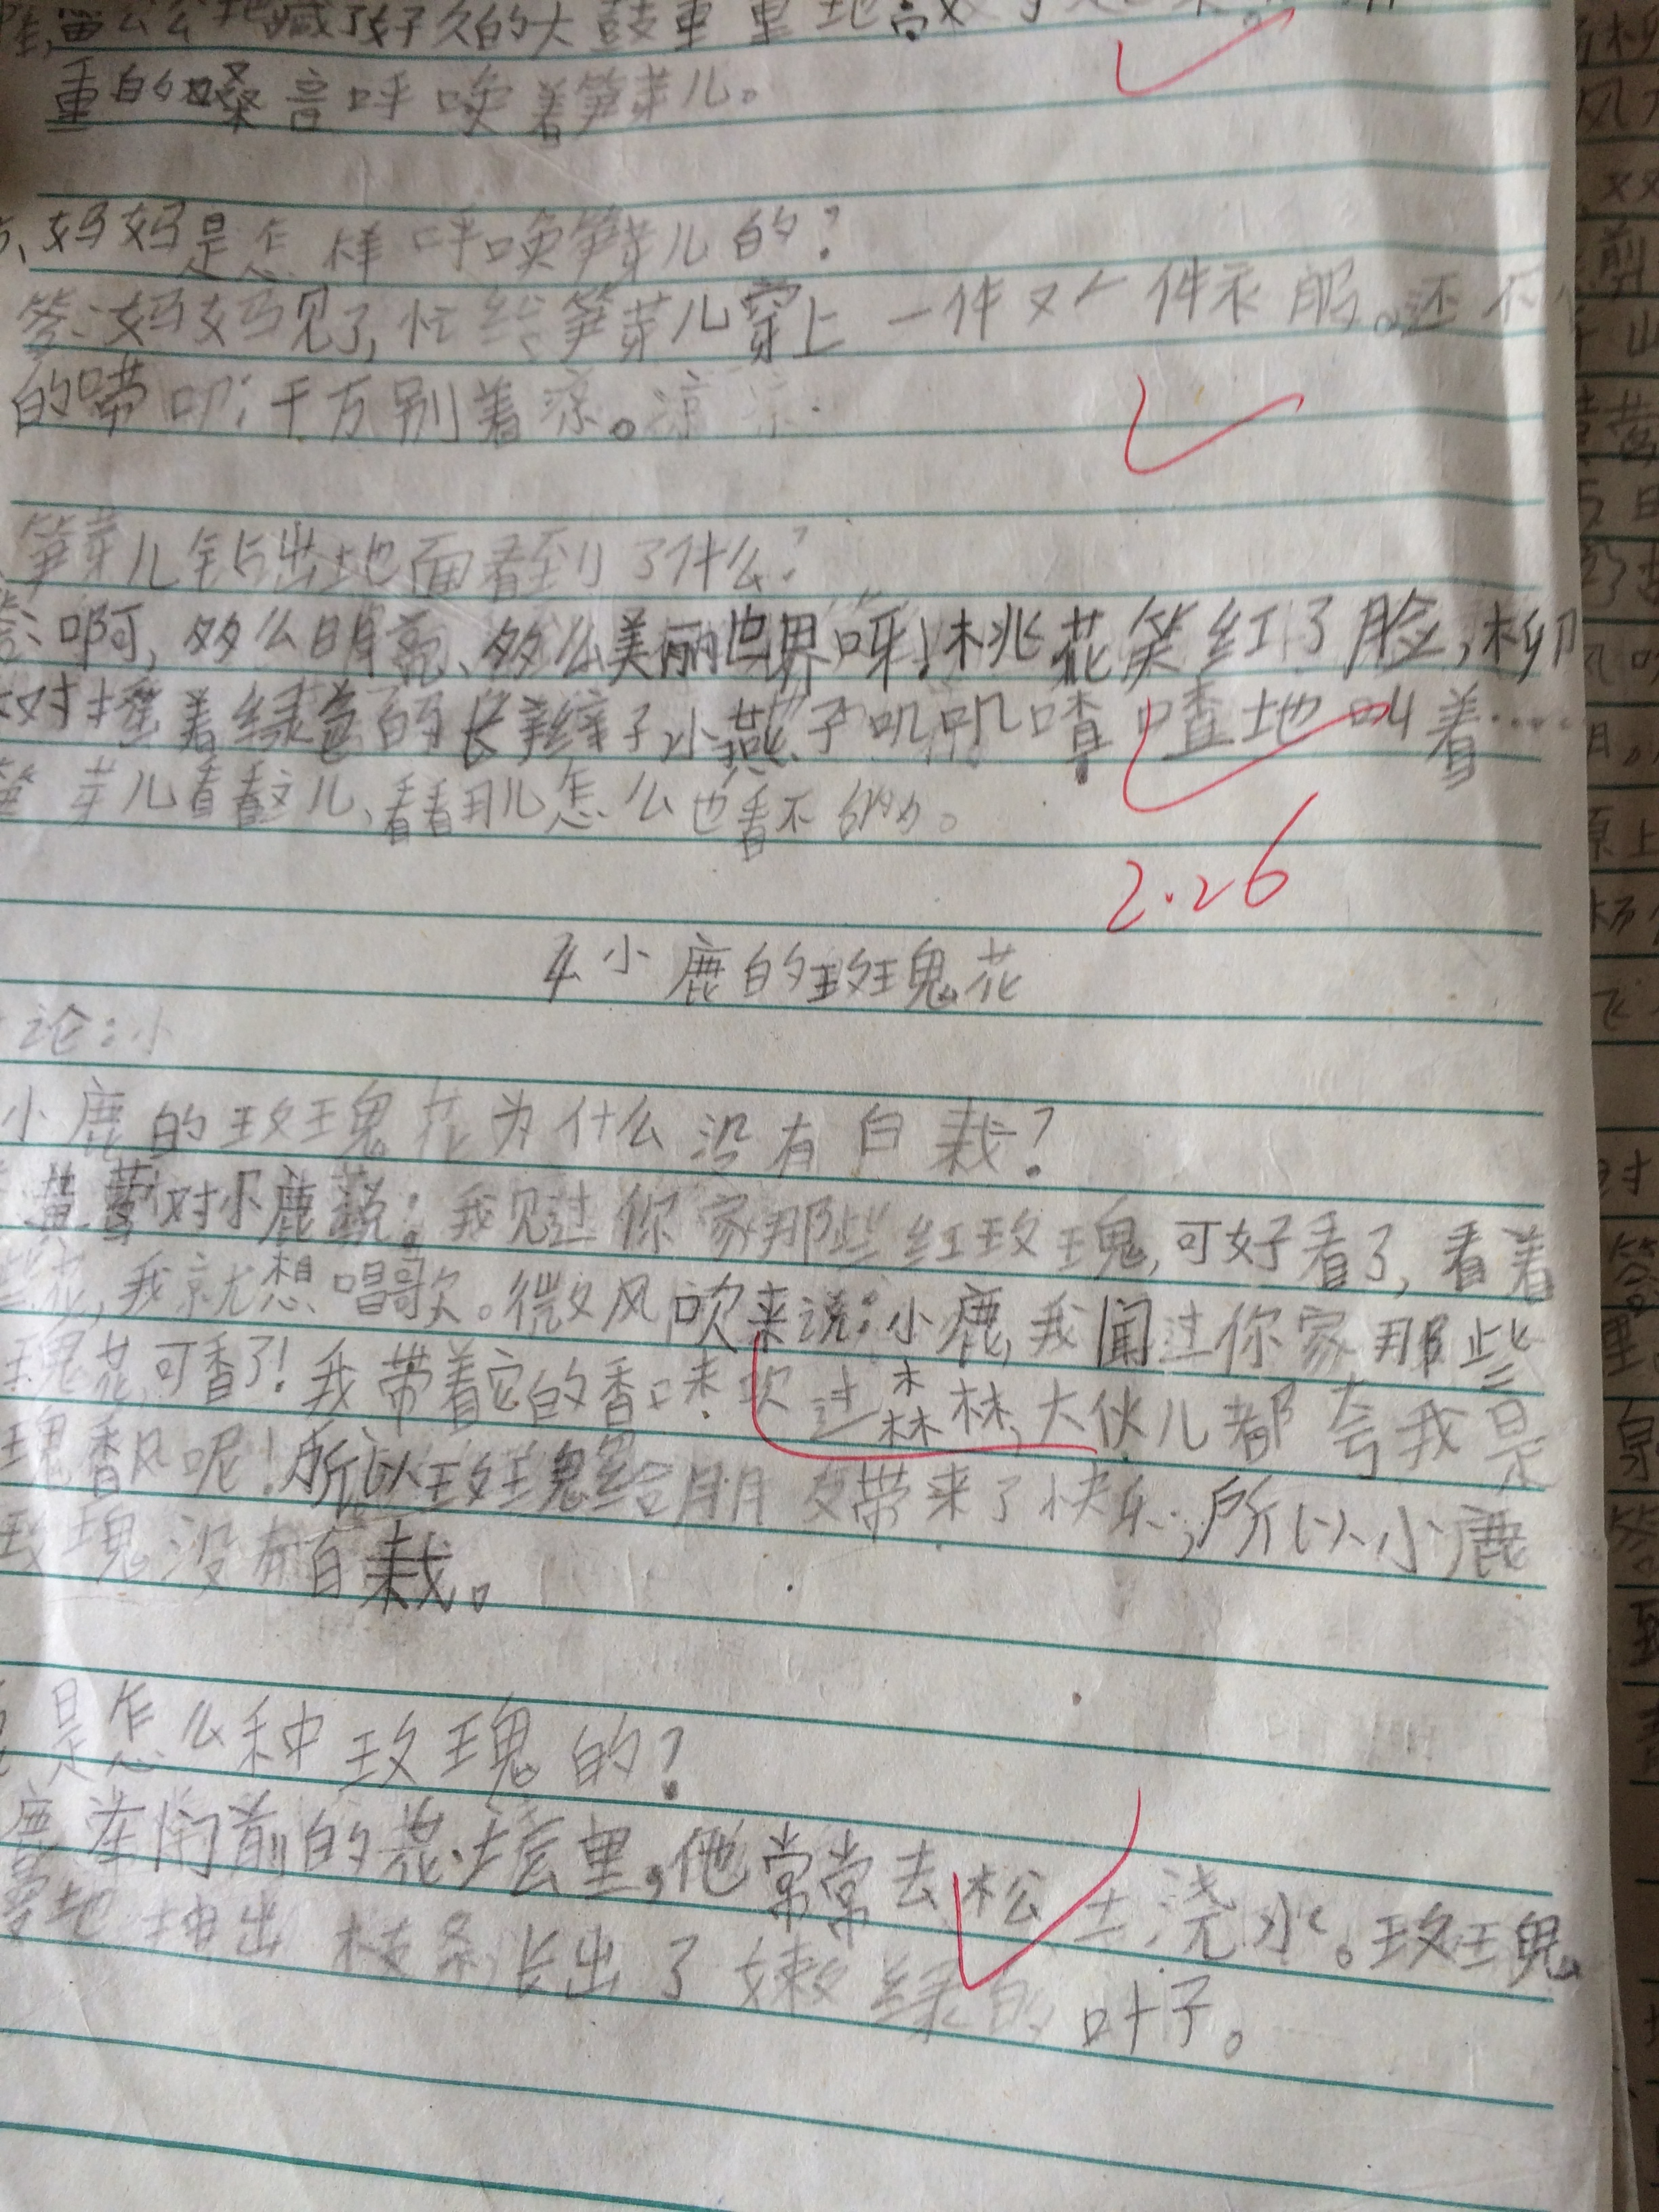 重的嗓音呼唤着笋芽儿。
妈妈是怎样呼唤笋芽儿的?
答:妈妈见了,忙给笋芽儿穿上一件又一件衣服。还不
的唠叨:千万别着凉。
笋芽儿钻出地面看到了什么?
答:啊,多么明亮、多么美丽世界呀!桃花笑红了脸,柳
对摇着绿色的长辫子,小燕子叽叽喳喳地叫着……
笋芽儿看看这儿、看看那儿怎么也看不够。
2.26
4小鹿的玫瑰花
论:小
小鹿的玫瑰花为什么没有白栽?
黄莺对小鹿说:我见过你家那些红玫瑰,可好看了,看着
花,我就想唱歌。微风吹来说:小鹿,我闻过你家那些
瑰花,可香了!我带着它的香味吹过森林,大伙儿都夸我是
瑰香风呢!所以玫瑰给朋友带来了快乐,所以小鹿
玫瑰没有白栽。
是怎么种玫瑰的?
鹿在门前的花坛里,他常常去松土浇水。玫瑰
地抽出枝条,长出了嫩绿的叶子。